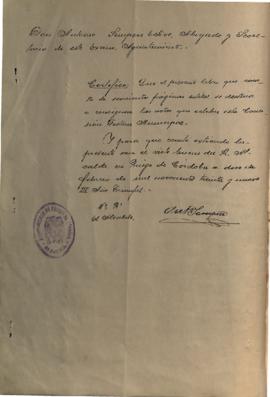 Don Antonio Sempere Esteve, Abogado y Secre-
tario de este Excmo. Ayuntamiento.
Certifico: Que el presente libro que cons-
ta de páginas útiles se destina
a consignar las actas que celebre esta Comi-
sión Gestora Municipal.
Y para que conste extiendo la
presente con el visto bueno del Sr. Al-
calde en Priego de Córdoba a doce de
febrero de mil novecientos treinta y nueve
III Año Triunfal.
Vº Bº
el Alcalde,